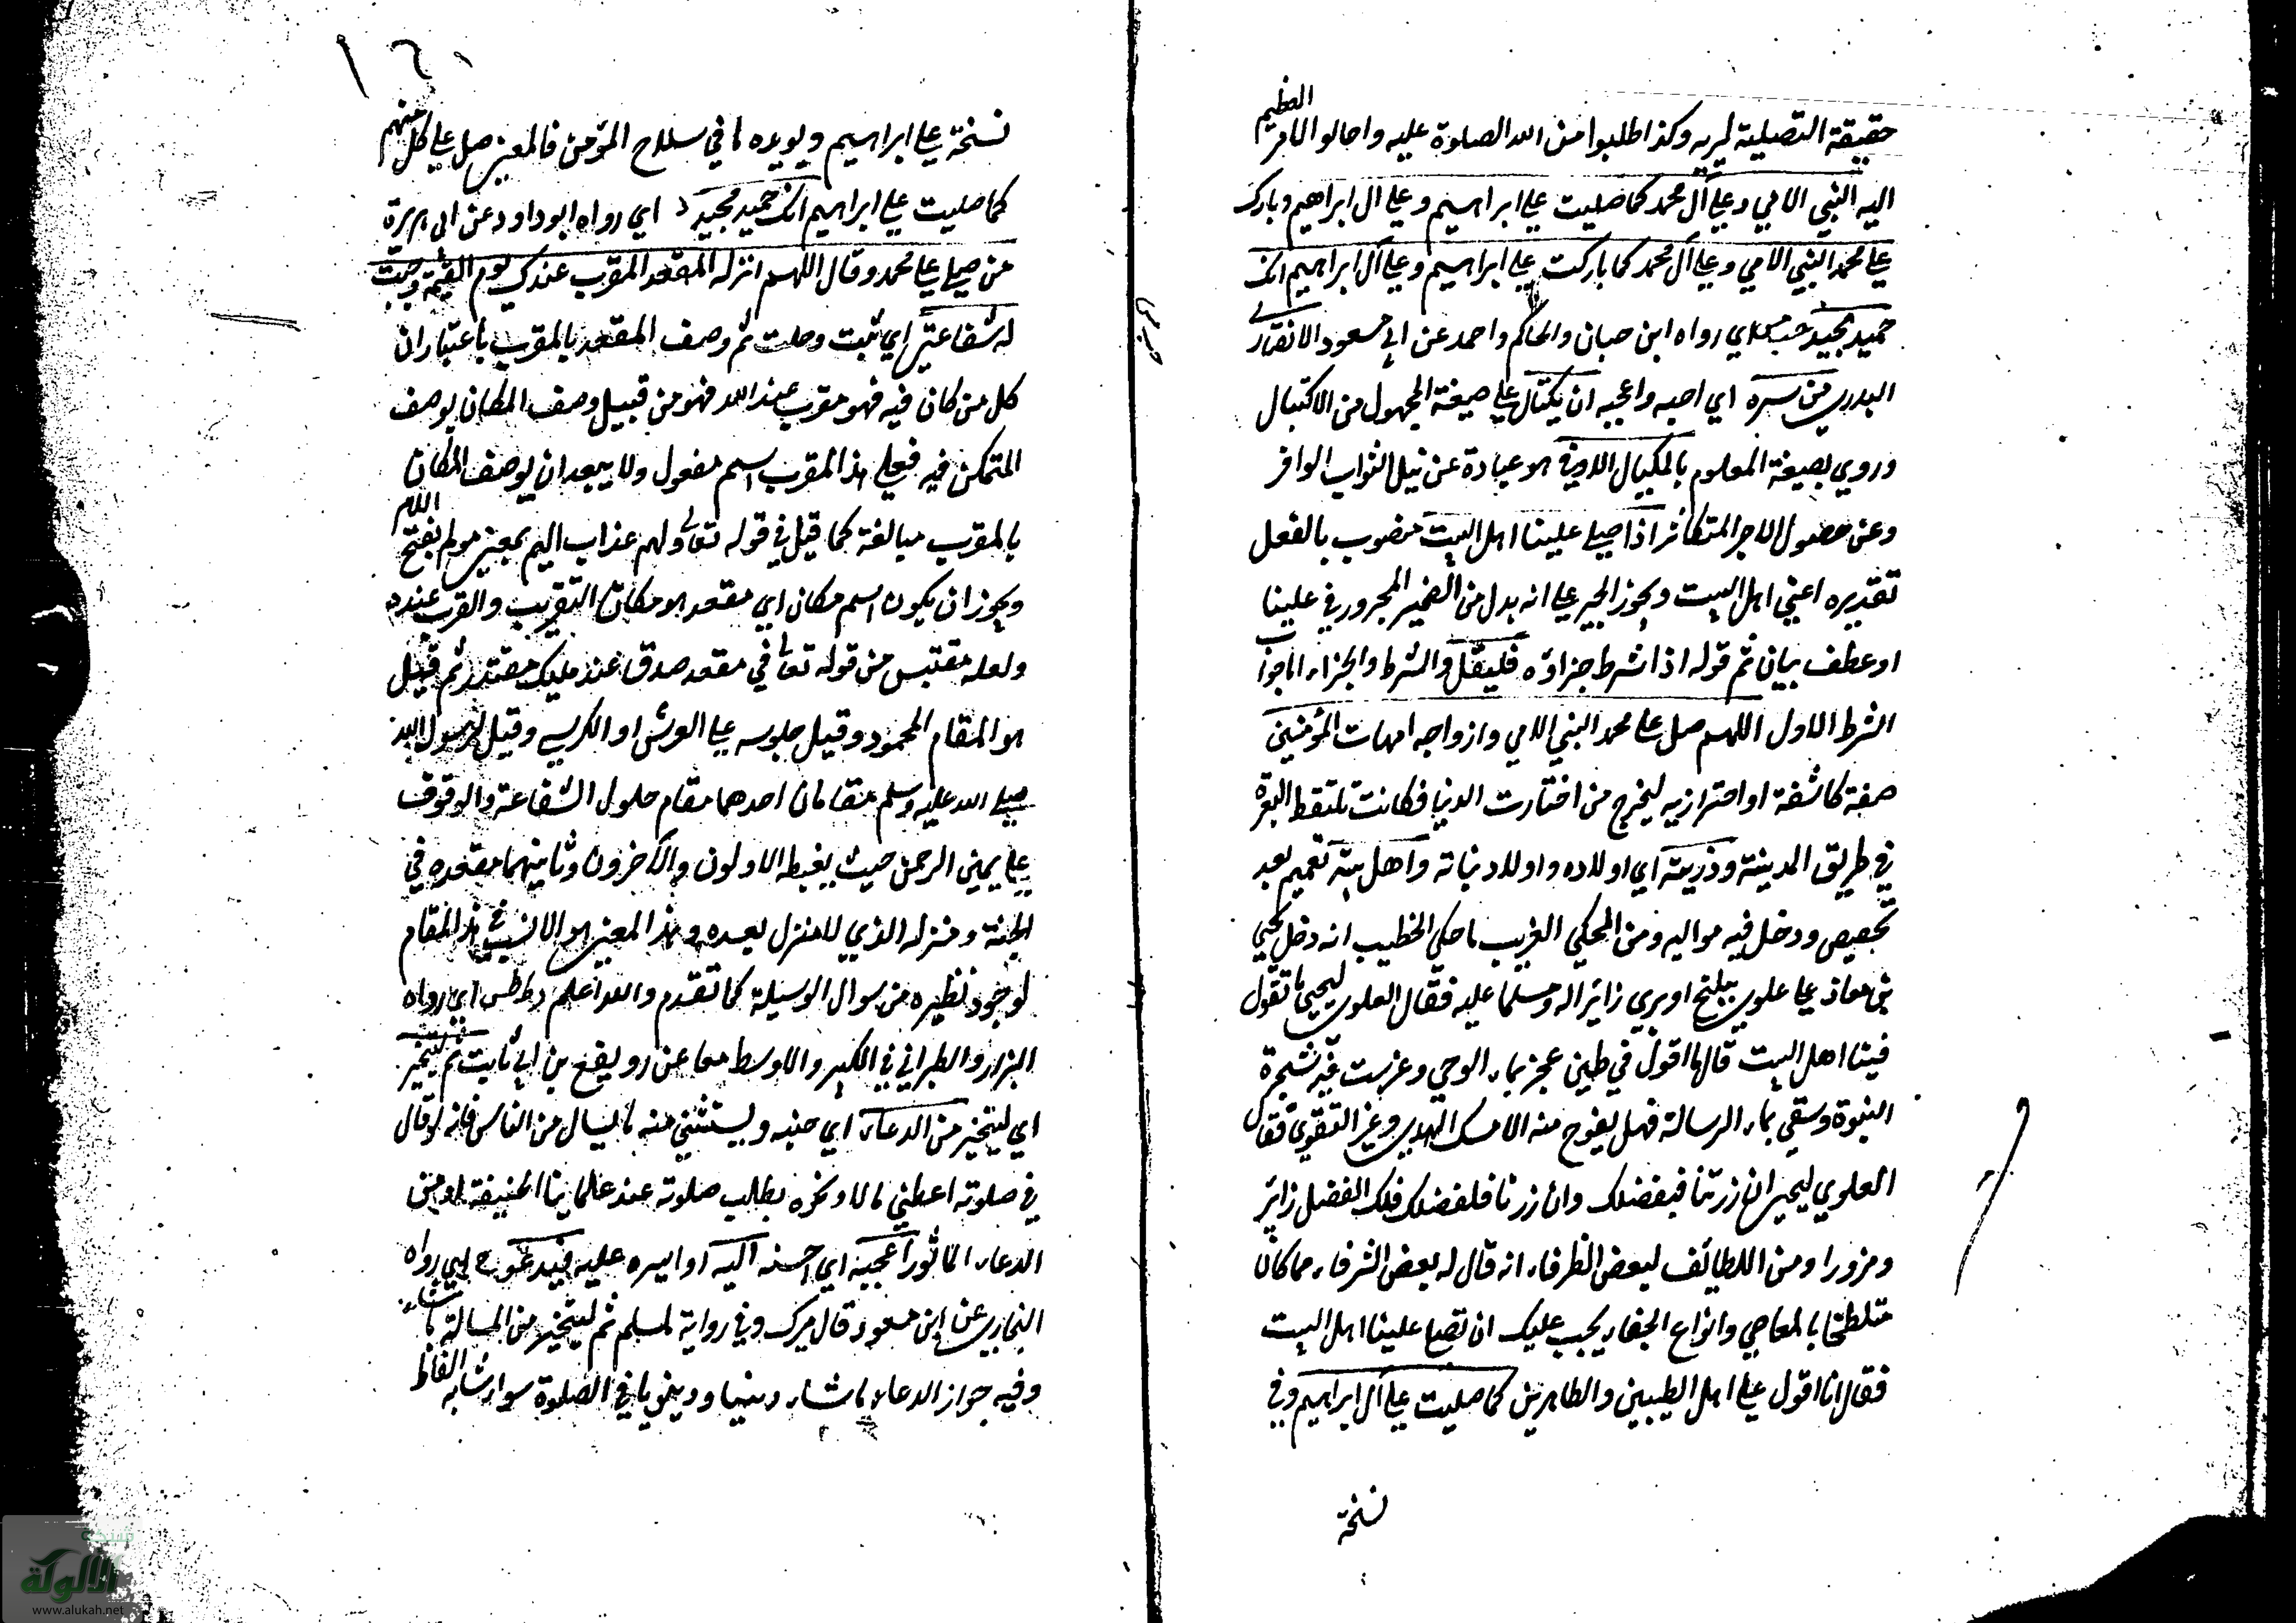 حقيقة التصلية لربه وكذا طلبوا من الله الصلوة عليه واحالوا الامر العظيم
اليه النبي الامي وعلى آل محمد كما صليت على ابراهيم وعلى ال ابراهيم وبارك
على محمد النبي الامي وعلى آل محمد كما باركت على ابراهيم وعلى آل ابراهيم انك
حميد مجيد حب مس ا اي رواه ابن حبان والحاكم واحمد عن ابي مسعود الانصاري
البدري من سره اي احبه واعجبه ان يكتال على صيغة المجهول من الاكتيال
وروي بصيغة المعلوم بالمكيال الاوفى هو عبارة عن نيل الثواب الوافر
وعن حصول الاجر المتكاثر اذا صلى علينا اهل البيت منصوب بالفعل
تقديره اعني اهل البيت ويجوز الجر على انه بدل من الضمير المجرور في علينا
او عطف بيان ثم قوله اذا شرط جزاؤه فليقل والشرط والجزاء جواب
الشرط الاول اللهم صل على محمد النبي الامي وازواجه امهات المؤمنين
صفة كاشفة او احترازيه ليخرج من اختارت الدنيا فكانت تلتقط البعرة
في طريق المدينة وذريته اي اولاده واولاد بناته واهل بيته تعميم بعد
تخصيص ودخل فيه مواليه ومن المحكي الغريب ما حكي الخطيب انه دخل يحيى
بن معاذ على علوي ببلخ او بري زائرا له ومسلما عليه فقال العلوي ليحيى ما تقول
فينا اهل البيت قال ما اقول في طين عجن بماء الوحي وغرست فيه شجرة
النبوة وسقي بماء الرسالة فهل يفوح منه الا مسك الهدى وعنبر التقوى فقال
العلوي ليحيى ان زرتنا فبفضلك وان زرنا فلفضلك فلك الفضل زائر
ومزورا ومن اللطائف لبعض الظرفاء انه قال له بعض الشرفاء مما كان
متلطخا بالمعاصي وانواع الجفاء يجب عليك ان تصلي علينا اهل البيت
فقال انا اقول على اهل الطيبين والطاهرين كما صليت على آل ابراهيم وفي
نسخة
نسخة على ابراهيم ويويده ما في سلاح المؤمن فالمعنى صل على كل منهم
كما صليت على ابراهيم انك حميد مجيد د اي رواه ابو داود عن ابي هريرة
من صلى على محمد وقال اللهم انزله المقعد المقرب عندك يوم القيمة وجبت
له شفاعتي اي ثبت وحلت ثم وصف المقعد بالمقرب باعتبار ان
كل من كان فيه فهو مقرب عند الله فهو من قبيل وصف المكان بوصف
المتمكن فيه فعلى هذا المقرب اسم مفعول ولا يبعد ان يوصف المكان
بالمقرب مبالغة كما قيل في قوله تعالى ولهم عذاب اليم بمعنى مولم بفتح اللام
ويجوز ان يكون اسم مكان اي مقعد هو مكان التقريب والقرب عنده
ولعله مقتبس من قوله تعالى في مقعد صدق عند مليك مقتدر ثم قيل
هو المقام المحمود وقيل جلوسه على العرش او الكرسي وقيل لرسول الله
صلى الله عليه وسلم مقامان احدهما مقام حلول الشفاعة والوقوف
على يمين الرحمن حيث يغبطه الاولون والآخرون وثانيهما مقعده في
الجنة ومنزله الذي لا منزل بعده وهذا المعنى هو الانسب في هذا المقام
لوجود نظيره من سوال الوسيلة كما تقدم والله اعلم ر ط طس اي رواه
البزار والطبراني في الكبير والاوسط معا عن رويفع بن ابي ثابت ثم ليتخير
اي ليتخير من الدعاء اي جنسه ويستثنى منه ما يسال من الناس فانه لو قال
في صلوته اعطني مالا ونحوه بطلب صلوته عند علمائنا الحنيفة ومن
الدعاء الماثور اعجبه اي احسنه اليه او ايسره عليه فيدعو خ اي رواه
البخاري عن ابن مسعود قال ميرك وفي رواية لمسلم ثم ليتخير من المسالة ما شاء
وفيه جواز الدعاء بما شاء دينيا ودينويا في الصلوة سواء شابه الفاظ